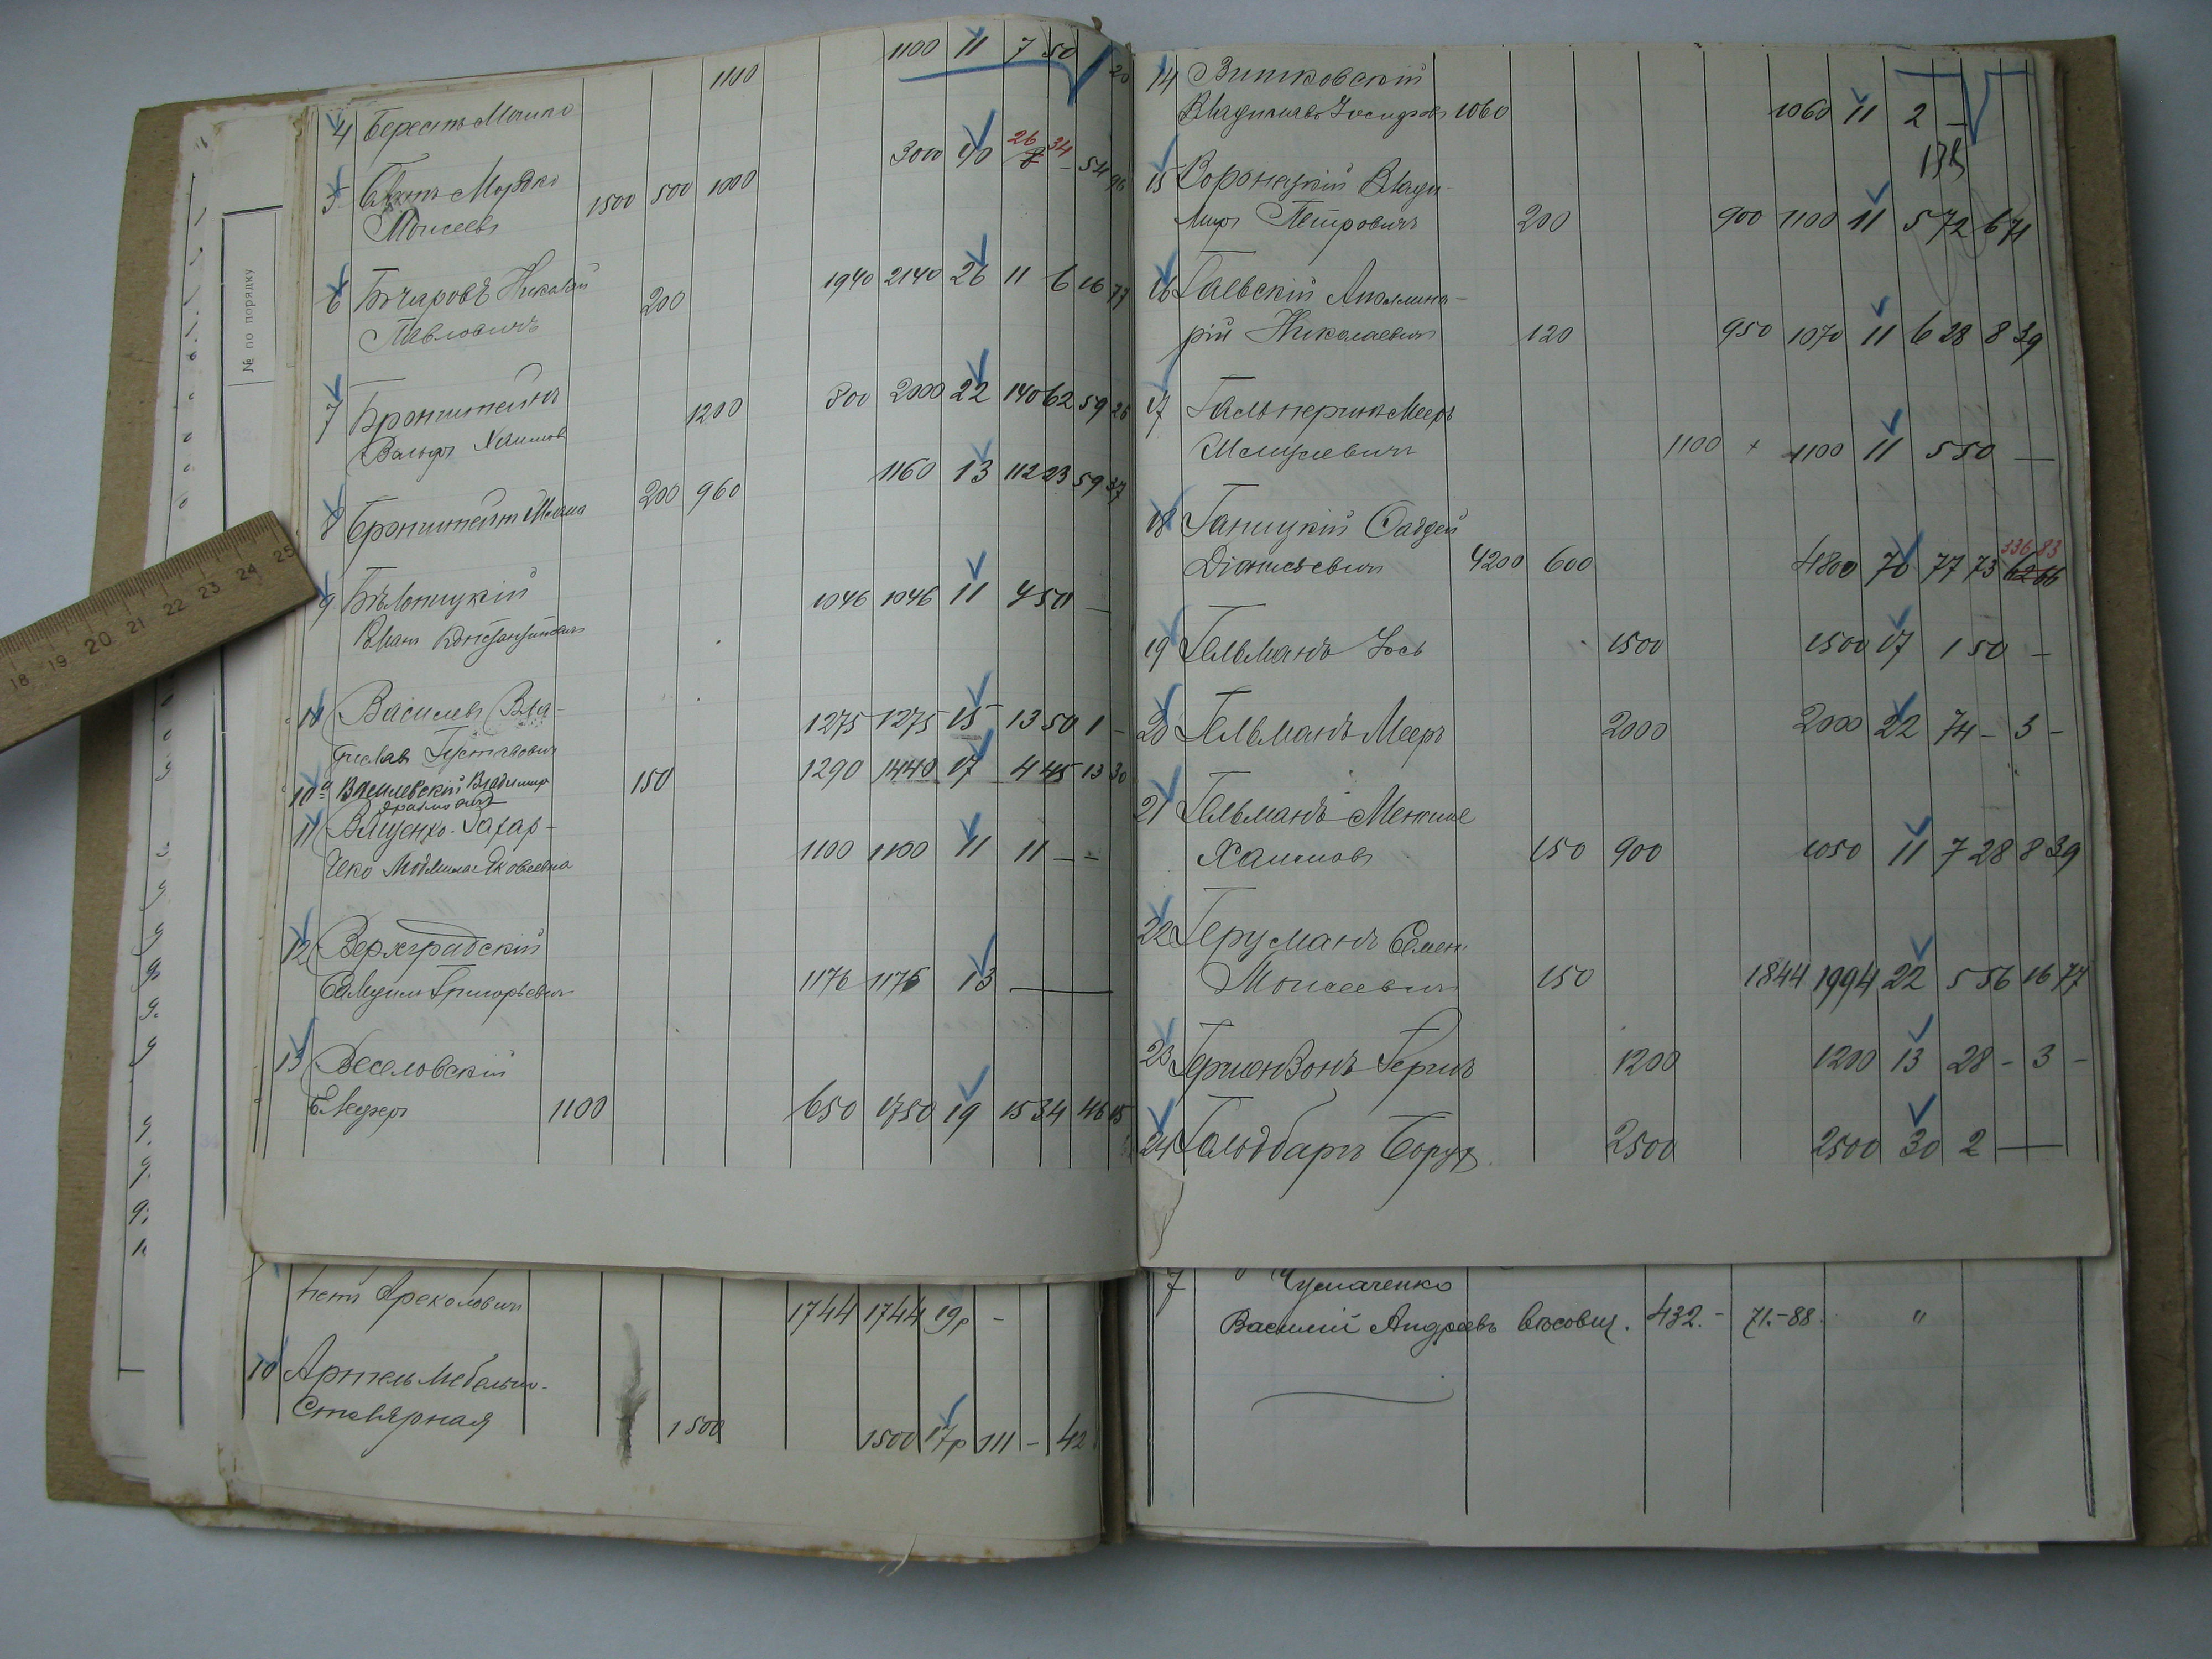 1100 1100 11 7 50
4 Берестъ Мошко
3000 40 26 34 54
5 Мордко 1500 500 1000
Моисеевъ
6 Бѣчаровъ Николай 200 1940 2140 26 11 6 16 77
Павловичъ
7 Бронштейнъ 1200 800 2000 22 140 62 59 26
Вольфъ Хаимов
8 Бронштейн 200 960 1160 13 112 23 59 37
9 Бѣлоницкій 1046 1046 11 4 50 —
Романъ Константинович
10 Василевъ Вла- 1275 1275 15 13 50 1 —
Густавович
10а Василевскій Владимир 150 1290 1440 17 4 45 13 30
11 Ващенко-Захар- 1100 1100 11 11 — —
ченко Людмила Яковлевна
12 Верхградскій
Самуил Григорьевич 1176 1176 13 —
13 Веселовскій
1100 650 1750 19 15 34 46 15
петъ
1744 1744 19р —
10 Артель Мебельно-
Столярная 1500 1500 17р 111 — 42
№ по порядку
18 19 20 21 22 23 24 25
14 Витковскій
Владиславъ 1060 1060 11 2 —
135
15 Вороницкій Влади-
миръ Петровичъ 200 900 1100 11 5 72 6 71
16 Гаевскій Аполлина-
рій Николаевич 120 950 1070 11 6 28 8 39
17 Гальперинъ Мееръ
1100 + 1100 11 5 50 —
18 Ганицкій Фаддей 336 83
Діонисьевич 4200 600 4800 70 77 73 62 66
19 Гельманъ Іось 1500 1500 17 1 50 —
20 Гельманъ Мееръ 2000 2000 22 74 — 3 —
21 Гельманъ
Хаимовъ 150 900 1050 11 7 28 8 39
22 Геруманъ Семен
Моисеевичъ 150 1844 1994 22 5 56 16 77
23 Гершензонъ Герш 1200 1200 13 28 — 3 —
24 Гольдбаргъ Борух 2500 2500 30 2 —
7 Чумаченко
Василий Андреевъ вѣсовщ. 432.— 71.—88 "